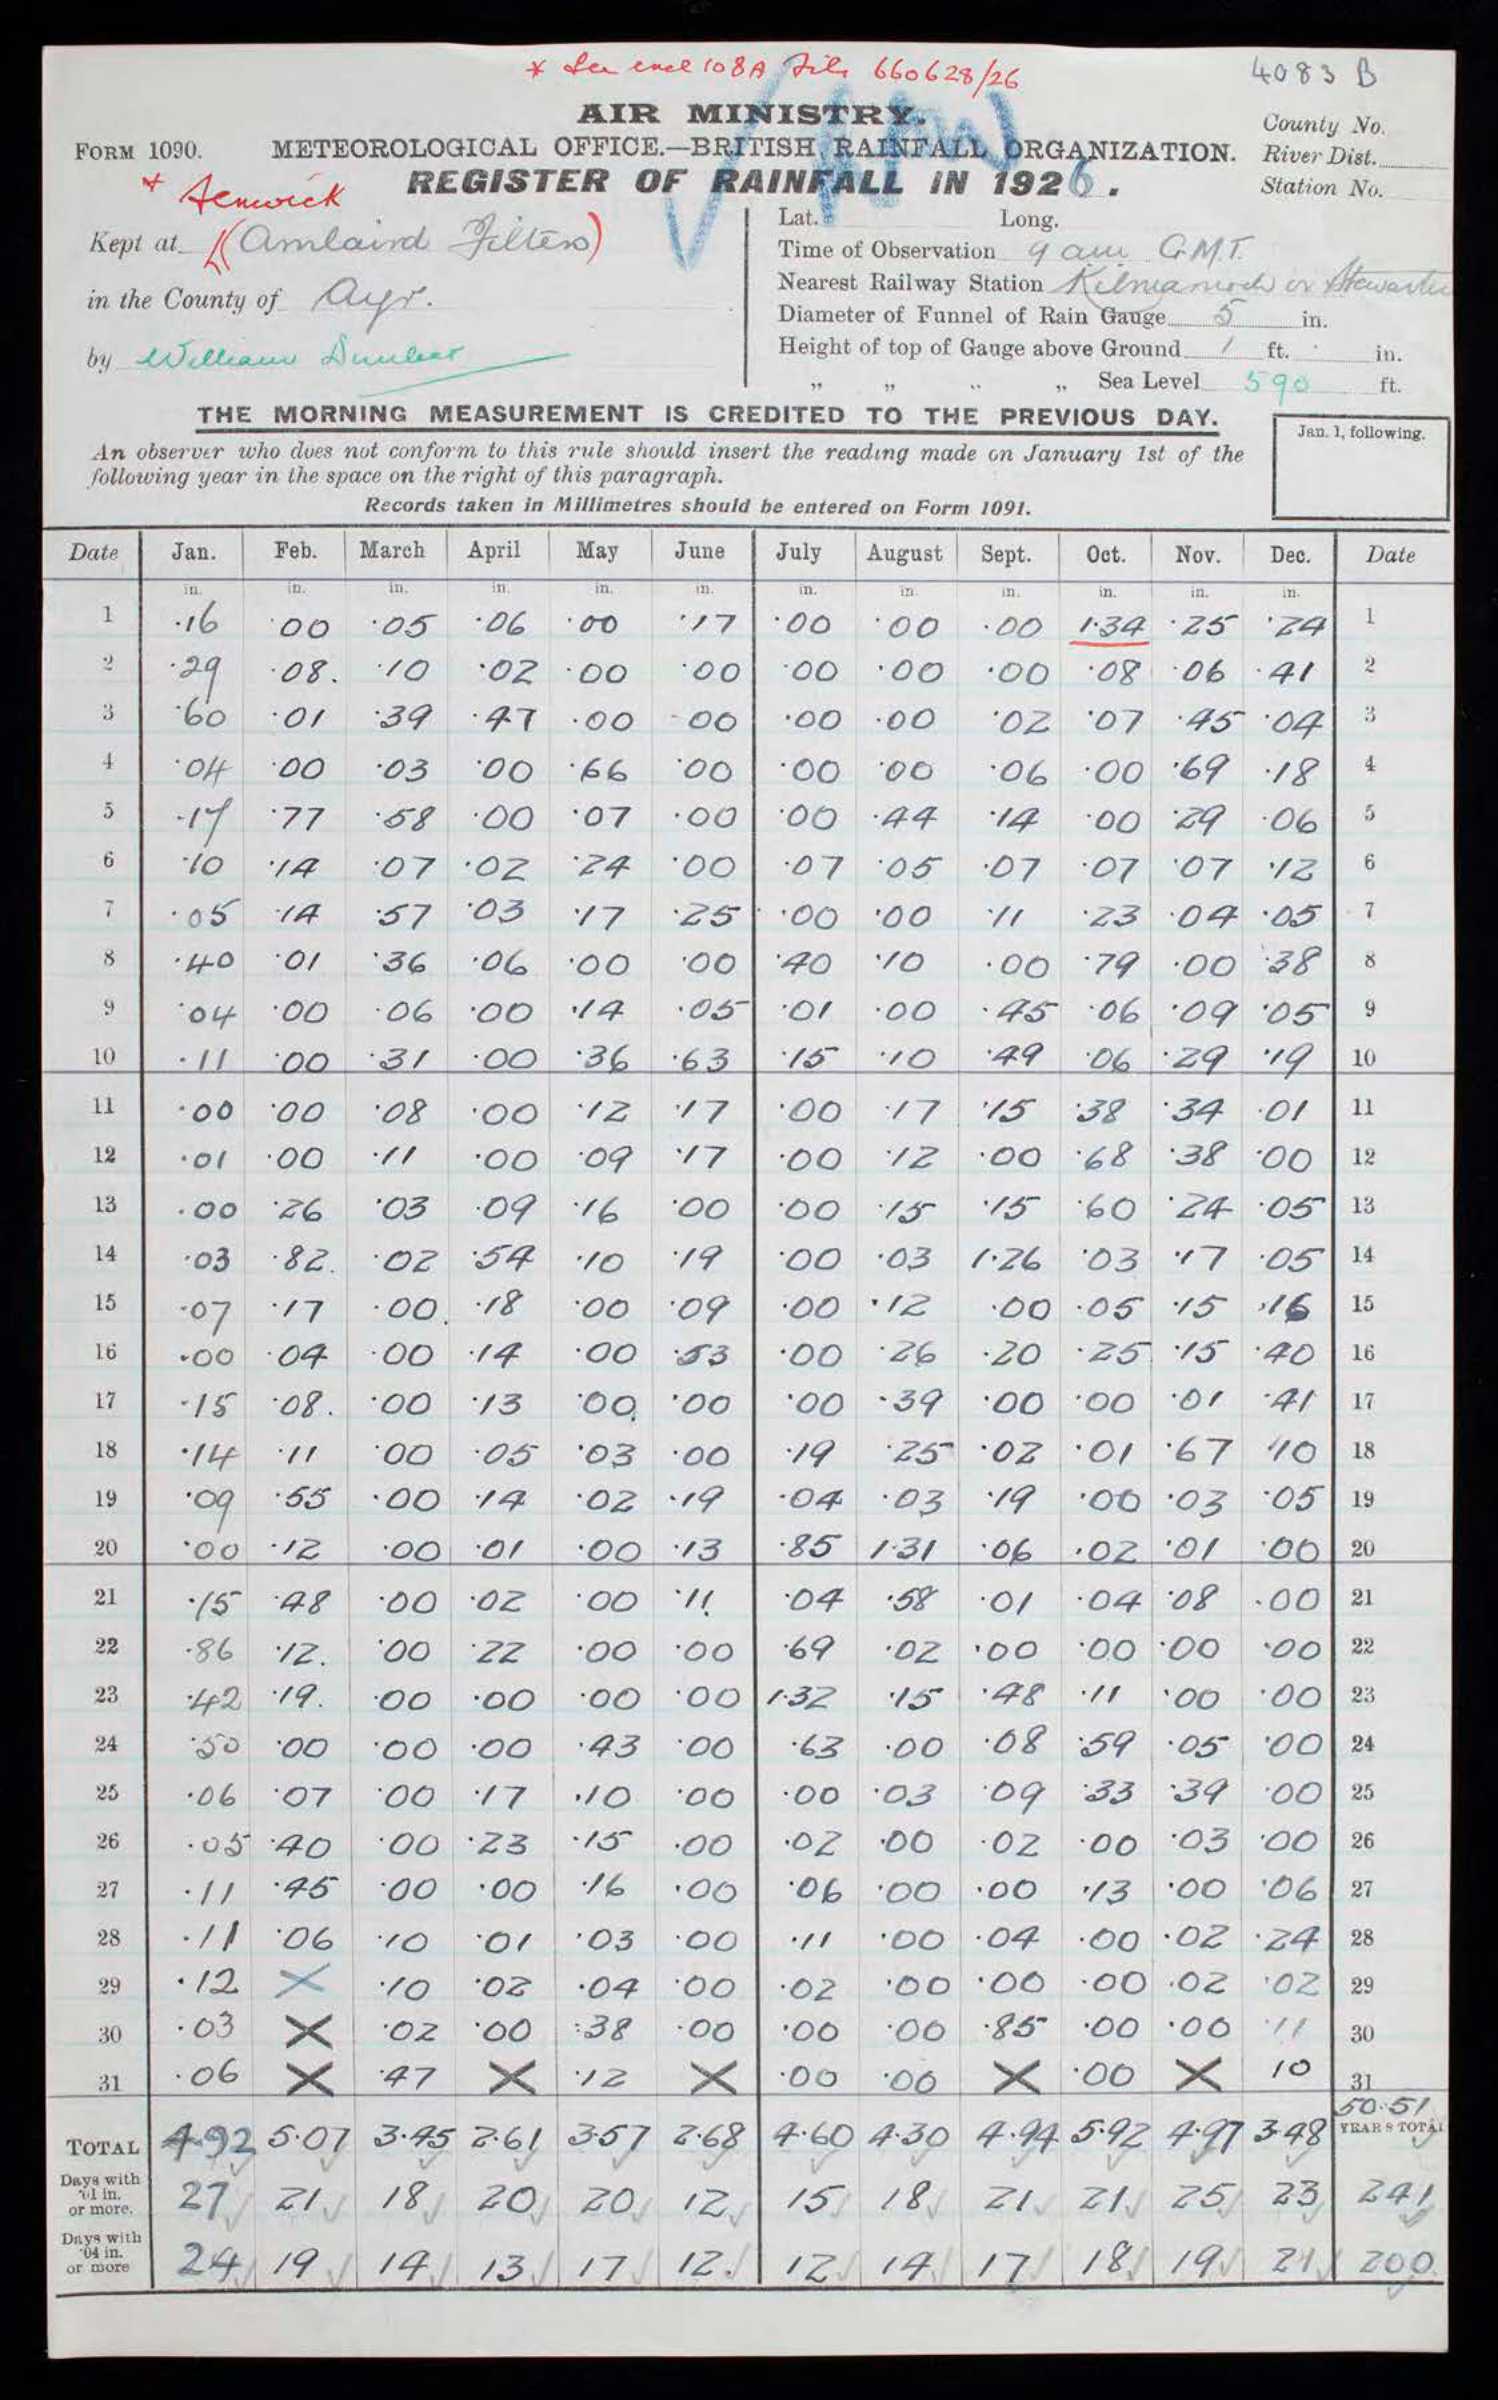 * See encl 108A File 660628/26
4083 B
AIR MINISTRY.
County No.
FORM 1090. METEOROLOGICAL OFFICE.—BRITISH RAINFALL ORGANIZATION. River Dist.
REGISTER OF RAINFALL IN 1926. Station No.
+ Fenwick
Kept at (Amlaird Filters)
in the County of Ayr.
by William Dunbar
Lat. Long.
Time of Observation 9 am G.M.T.
Nearest Railway Station Kilmarnock or Stewarton
Diameter of Funnel of Rain Gauge 5 in.
Height of top of Gauge above Ground 1 ft. in.
„ „ „ „ Sea Level 590 ft.
THE MORNING MEASUREMENT IS CREDITED TO THE PREVIOUS DAY.
An observer who does not conform to this rule should insert the reading made on January 1st of the
following year in the space on the right of this paragraph.
Jan. 1, following.
Records taken in Millimetres should be entered on Form 1091.
Date Jan. Feb. March April May June July August Sept. Oct. Nov. Dec. Date
in. in. in. in. in. in. in. in. in. in. in. in.
1 ·16 ·00 ·05 ·06 ·00 ·17 ·00 ·00 ·00 1·34 ·25 ·24 1
2 ·29 ·08. ·10 ·02 ·00 ·00 ·00 ·00 ·00 ·08 ·06 ·41 2
3 ·60 ·01 ·39 ·47 ·00 ·00 ·00 ·00 ·02 ·07 ·45 ·04 3
4 ·04 ·00 ·03 ·00 ·66 ·00 ·00 ·00 ·06 ·00 ·69 ·18 4
5 ·17 ·77 ·58 ·00 ·07 ·00 ·00 ·44 ·14 ·00 ·29 ·06 5
6 ·10 ·14 ·07 ·02 ·24 ·00 ·07 ·05 ·07 ·07 ·07 ·12 6
7 ·05 ·14 ·57 ·03 ·17 ·25 ·00 ·00 ·11 ·23 ·04 ·05 7
8 ·40 ·01 ·36 ·06 ·00 ·00 ·40 ·10 ·00 ·79 ·00 ·38 8
9 ·04 ·00 ·06 ·00 ·14 ·05 ·01 ·00 ·45 ·06 ·09 ·05 9
10 ·11 ·00 ·31 ·00 ·36 ·63 ·15 ·10 ·49 ·06 ·29 ·19 10
11 ·00 ·00 ·08 ·00 ·12 ·17 ·00 ·17 ·15 ·38 ·34 ·01 11
12 ·01 ·00 ·11 ·00 ·09 ·17 ·00 ·12 ·00 ·68 ·38 ·00 12
13 ·00 ·26 ·03 ·09 ·16 ·00 ·00 ·15 ·15 ·60 ·24 ·05 13
14 ·03 ·82. ·02 ·54 ·10 ·19 ·00 ·03 1·26 ·03 ·17 ·05 14
15 ·07 ·17 ·00. ·18 ·00 ·09 ·00 ·12 ·00 ·05 ·15 ·16 15
16 ·00 ·04 ·00 ·14 ·00 ·53 ·00 ·26 ·20 ·25 ·15 ·40 16
17 ·15 ·08. ·00 ·13 ·00. ·00 ·00 ·39 ·00 ·00 ·01 ·41 17
18 ·14 ·11 ·00 ·05 ·03 ·00 ·19 ·25 ·02 ·01 ·67 ·10 18
19 ·09 ·55 ·00 ·14 ·02 ·19 ·04 ·03 ·19 ·00 ·03 ·05 19
20 ·00 ·12 ·00 ·01 ·00 ·13 ·85 1·31 ·06 ·02 ·01 ·00 20
21 ·15 ·48 ·00 ·02 ·00 ·11. ·04 ·58 ·01 ·04 ·08 ·00 21
22 ·86 ·12. ·00 ·22 ·00 ·00 ·69 ·02 ·00 ·00 ·00 ·00 22
23 ·42 ·19. ·00 ·00 ·00 ·00 1·32 ·15 ·48 ·11 ·00 ·00 23
24 ·50 ·00 ·00 ·00 ·43 ·00 ·63 ·00 ·08 ·59 ·05 ·00 24
25 ·06 ·07 ·00 ·17 ·10 ·00 ·00 ·03 ·09 ·33 ·39 ·00 25
26 ·05 ·40 ·00 ·23 ·15 ·00 ·02 ·00 ·02 ·00 ·03 ·00 26
27 ·11 ·45 ·00 ·00 ·16 ·00 ·06 ·00 ·00 ·13 ·00 ·06 27
28 ·11 ·06 ·10 ·01 ·03 ·00 ·11 ·00 ·04 ·00 ·02 ·24 28
29 ·12 X ·10 ·02 ·04 ·00 ·02 ·00 ·00 ·00 ·02 ·02 29
30 ·03 X ·02 ·00 ·38 ·00 ·00 ·00 ·85 ·00 ·00 ·11 30
31 ·06 X ·47 X ·12 X ·00 ·00 X ·00 X 10 31
50·51
TOTAL 4·92 5·07 3·45 2·61 3·57 2·68 4·60 4·30 4·94 5·92 4·97 3·48 YEAR'S TOTAL
Days with ·01 in. or more. 27 21 18 20 20 12 15 18 21 21 25 23 241
Days with ·04 in. or more 24 19 14 13 17 12. 12 14 17 18 19 21 200